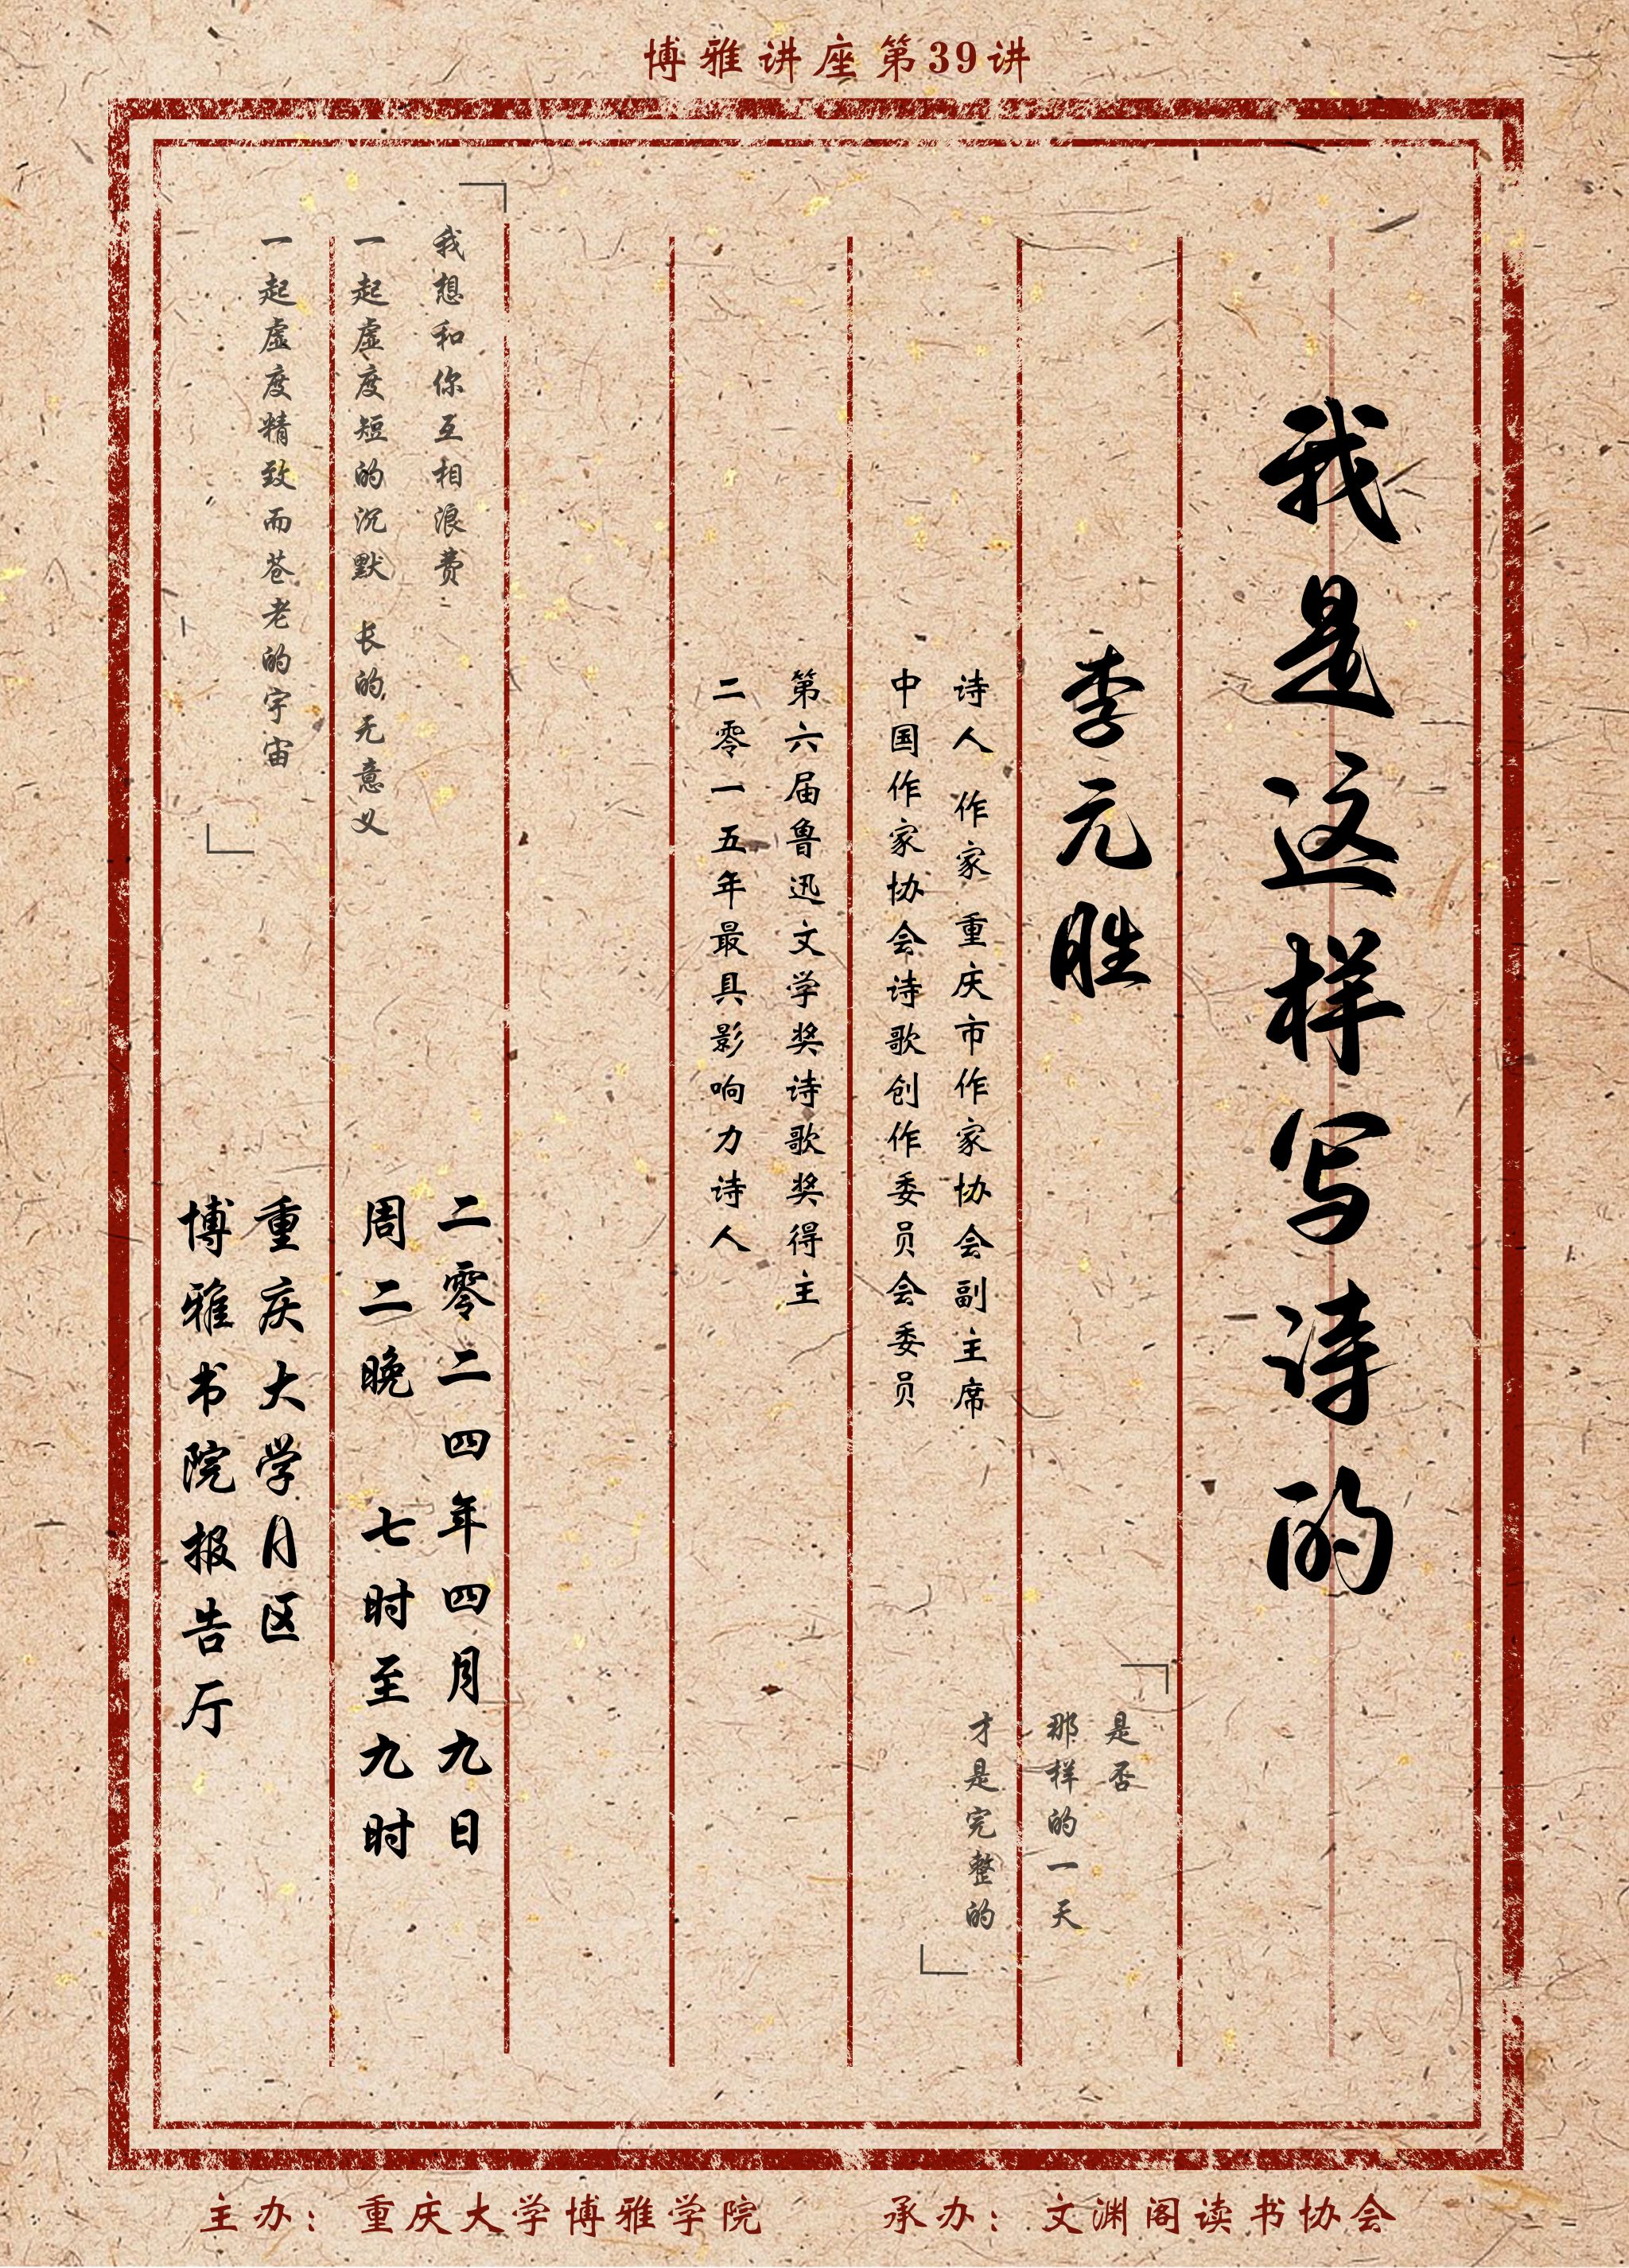 博雅讲座第39讲
我是这样写诗的
李元胜
诗人 作家 重庆市作家协会副主席
中国作家协会诗歌创作委员会委员
第六届鲁迅文学奖诗歌奖得主
二零一五年最具影响力诗人
是否
那样的一天
才是完整的
我想和你互相浪费
一起虚度短的沉默 长的无意义
一起虚度精致而苍老的宇宙
二零二四年四月九日
周二晚 七时至九时
重庆大学A区
博雅书院报告厅
主办：重庆大学博雅学院
承办：文渊阁读书协会